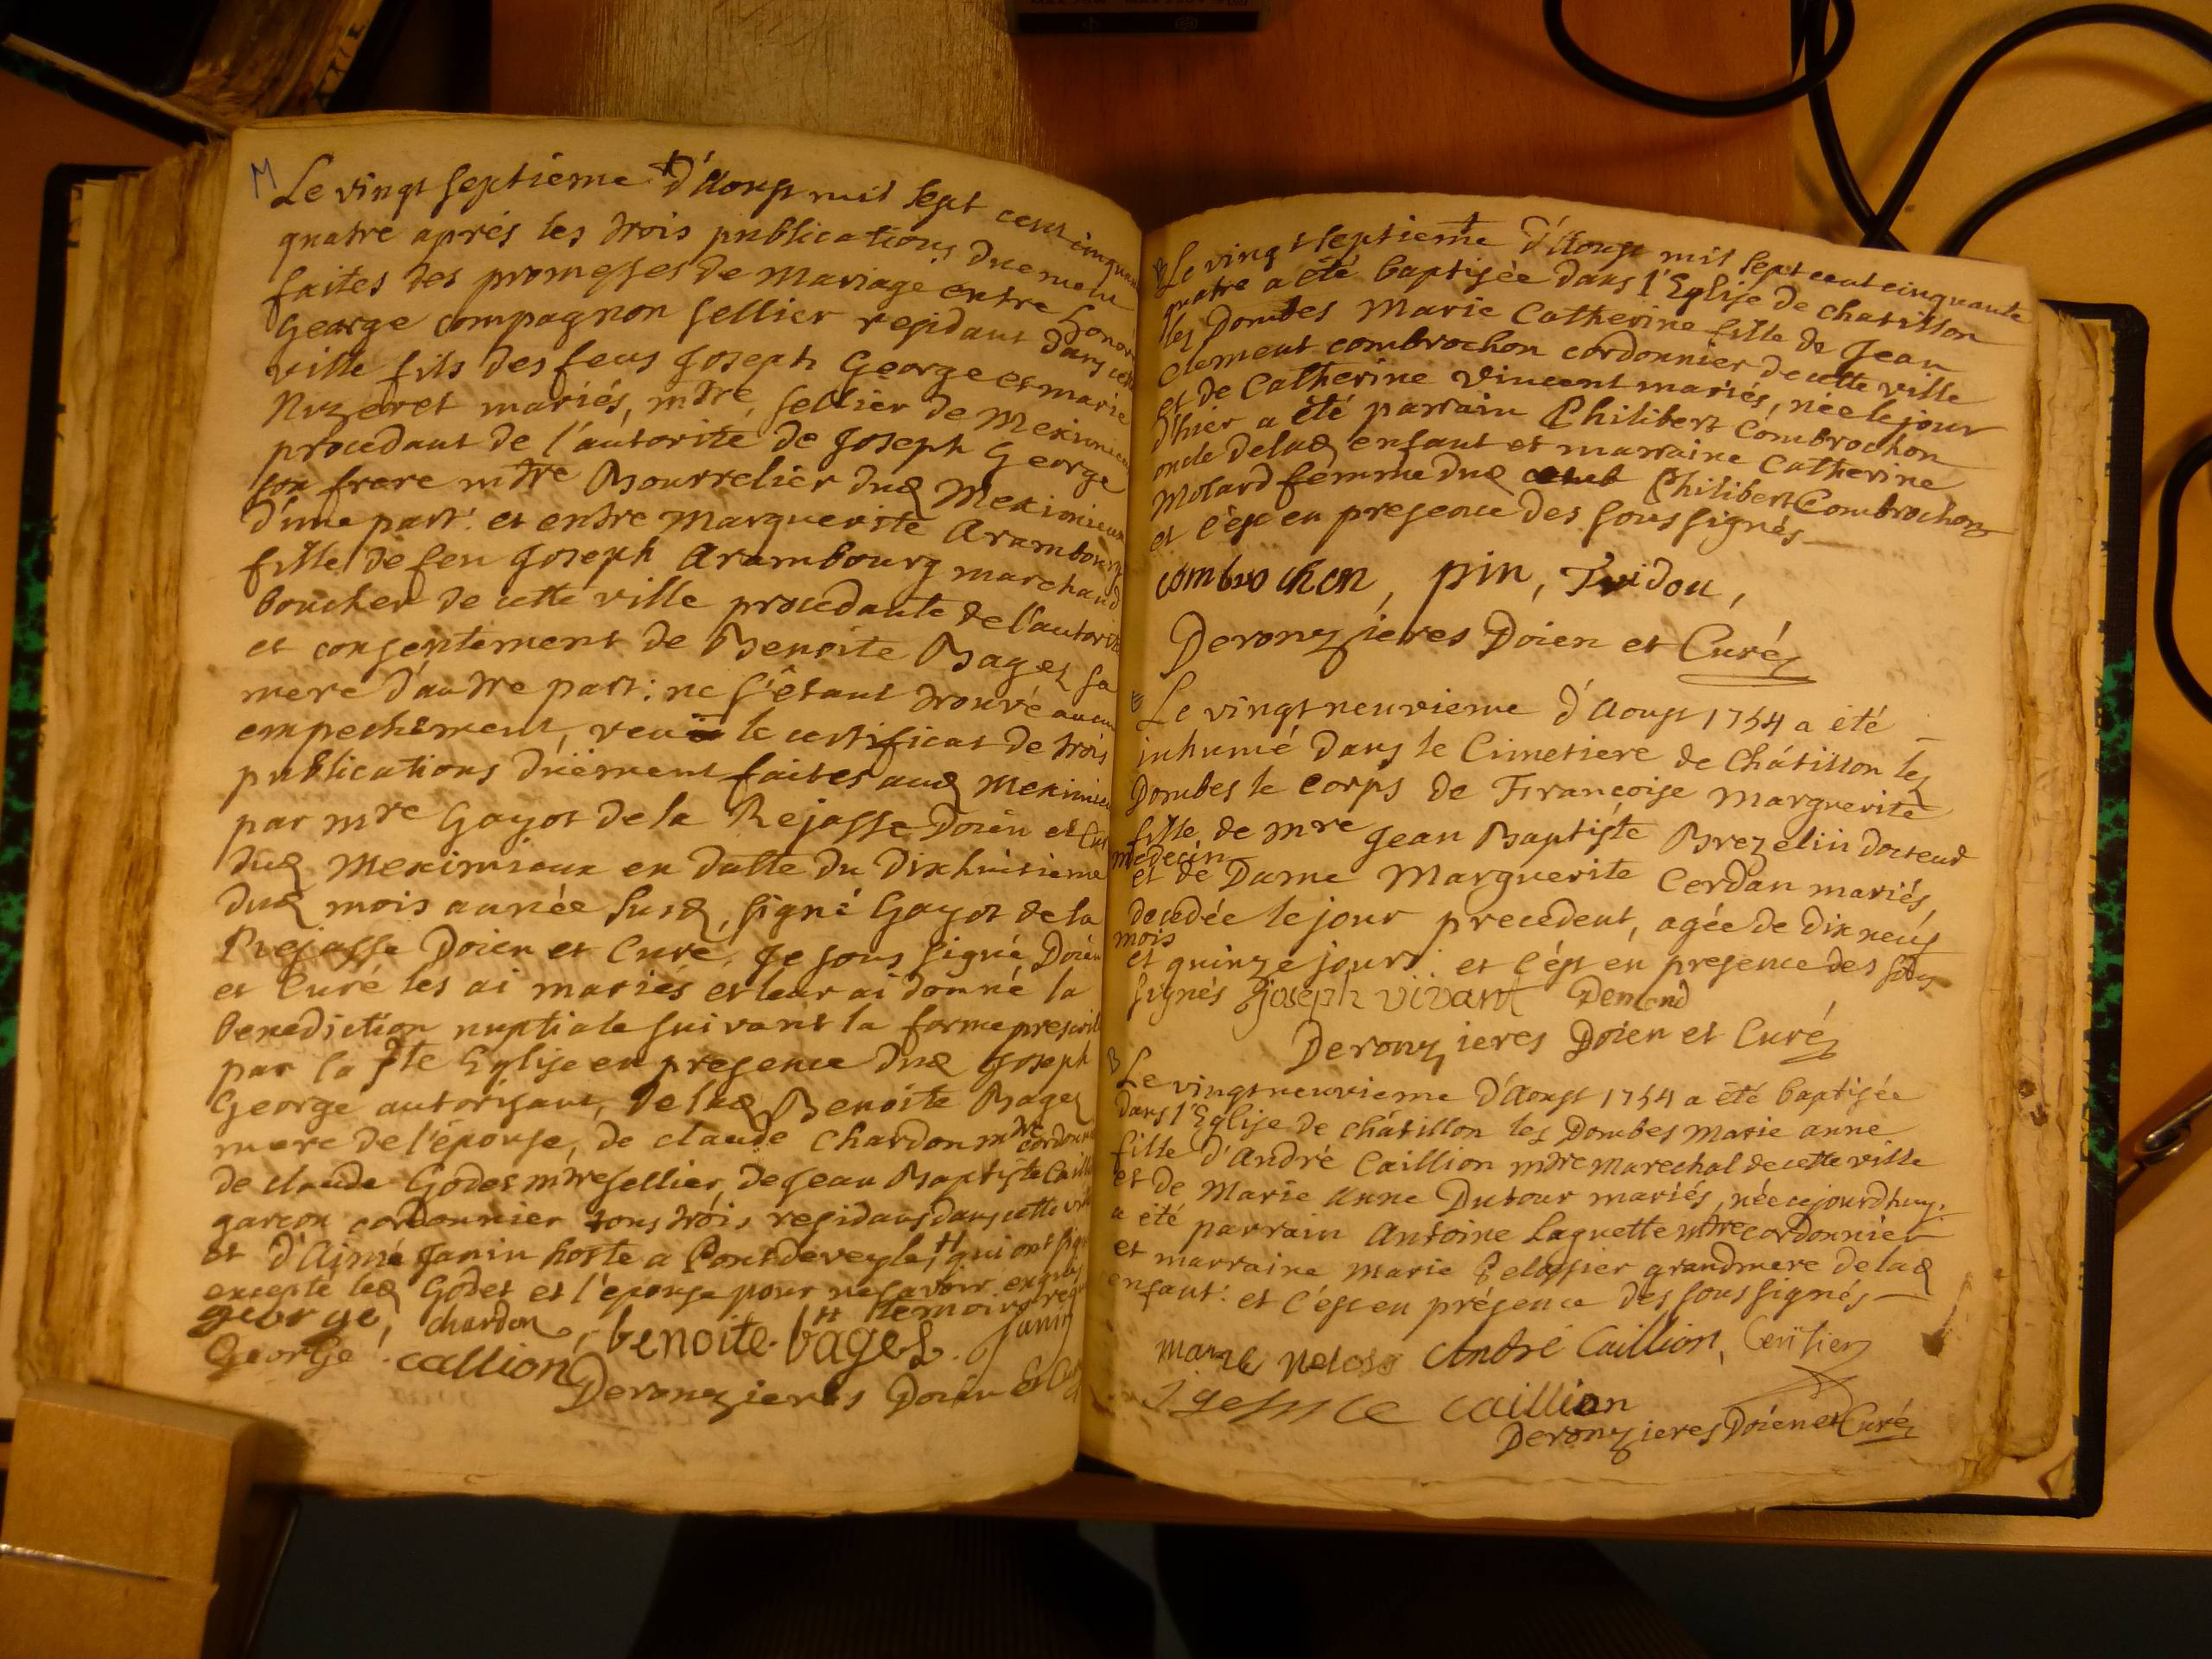 M
Le vingt septiéme d'Aoust mil sept cent cinquante
quatre aprés les trois publications duement
faites des promesses de Mariage entre Honoré
George compagnon sellier residant dans cette
ville fils des feus Joseph George et marie
Nizeret mariés, mtre sellier de Meximieux
procedant de l'autorité de Joseph George
son frere mtre Bourrelier dud Meximieux
d'une part: et entre Marguerite Arambourg
fille de feu Joseph Arambourg marchand
boucher de cette ville procedante de l'autorité
et consentement de Benoite Bages sa
mere d'autre part: ne s'étant trouvé aucun
empechement, veu le certificat de trois
publications düement faites aud Meximieux
par mre Gayot de la Rejasse Doien et Curé
dud Meximieux en datte du dixhuitieme
dud mois année susd, signé Gayot de la
Rejasse Doien et Curé, Je sous signé Doien
et Curé les ai mariés et leur ai donné la
benediction nuptiale suivant la forme prescrite
par la ste Eglise en presence dud Joseph
George autorisant, de lad Benoite Bages
mere de l'épouse, de claude Chardon mtre cordonnier
de claude Godet mtre sellier, de Jean Baptiste Caillion
garçon cordonnier tous trois residans dans cette ville
et d'Aimé Janin hoste a Pontdeveyle, # qui ont signé
excepté led Godet et l'épouse pour ne savoir enquis
# temoins requis
george, chardon, benoite bages. Janin
George. callion
Deronzieres Doien et Curé
B
Le vingt septieme d'Aoust mil sept cent cinquante
quatre a été baptisée dans l'Eglise de chatillon
les Dombes Marie Catherine fille de Jean
Clement combrochon cordonnier de cette ville
et de Catherine Vincent mariés, née le jour
d'hier a été parrain Philibert Combrochon
oncle de lad enfant et marraine Catherine
Molard femme dud Philibert Combrochon
et c'est en presence des sous signés
combrochon, pin, Tridon,
Deronzieres Doien et Curé
E
Le vingt neuvieme d'Aoust 1754 a été
inhumé dans le Cimetiere de Châtillon les
Dombes le corps de Françoise Marguerite
fille de mre Jean Baptiste Brezelin docteur
medecin
et de Dame Marguerite Cerdan mariés,
decedée le jour precedent, agée de dix neuf
mois
et quinze jours: et c'est en presence des sous
signés joseph vivant Demond
Deronzieres Doien et Curé
B
Le vingt neuvieme d'Aoust 1754 a été baptisée
dans l'Eglise de châtillon les Dombes Marie anne
fille d'André Caillion mtre marechal de cette ville
et de Marie Anne Dutour mariés, née cejourdhuy.
a été parrain Antoine Laguette mtre cordonnier
et marraine Marie Pelossier grandmere de lad
enfant: et c'est en présence des sous signés
marie peloss André Caillion,
caillion
Deronzieres Doien et Curé